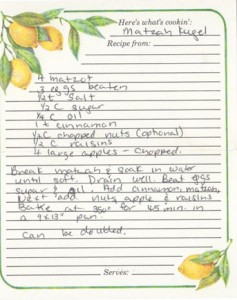 Here's what's cookin': Matzah Kugel
Recipe from:
4 matzot
3 eggs beaten
1/2 t salt
1/2 C sugar
1/4 C oil
1 t cinnamon
1/2 C chopped nuts (optional)
1/2 C raisins
4 large apples - chopped.
Break matzah & soak in water
until soft. Drain well. Beat eggs
sugar & oil. Add cinnamon, matzah,
Next add nuts apple & raisins
Bake at 350° for 45 min. in
a 9x13" pan.
Can be doubled.
Serves: